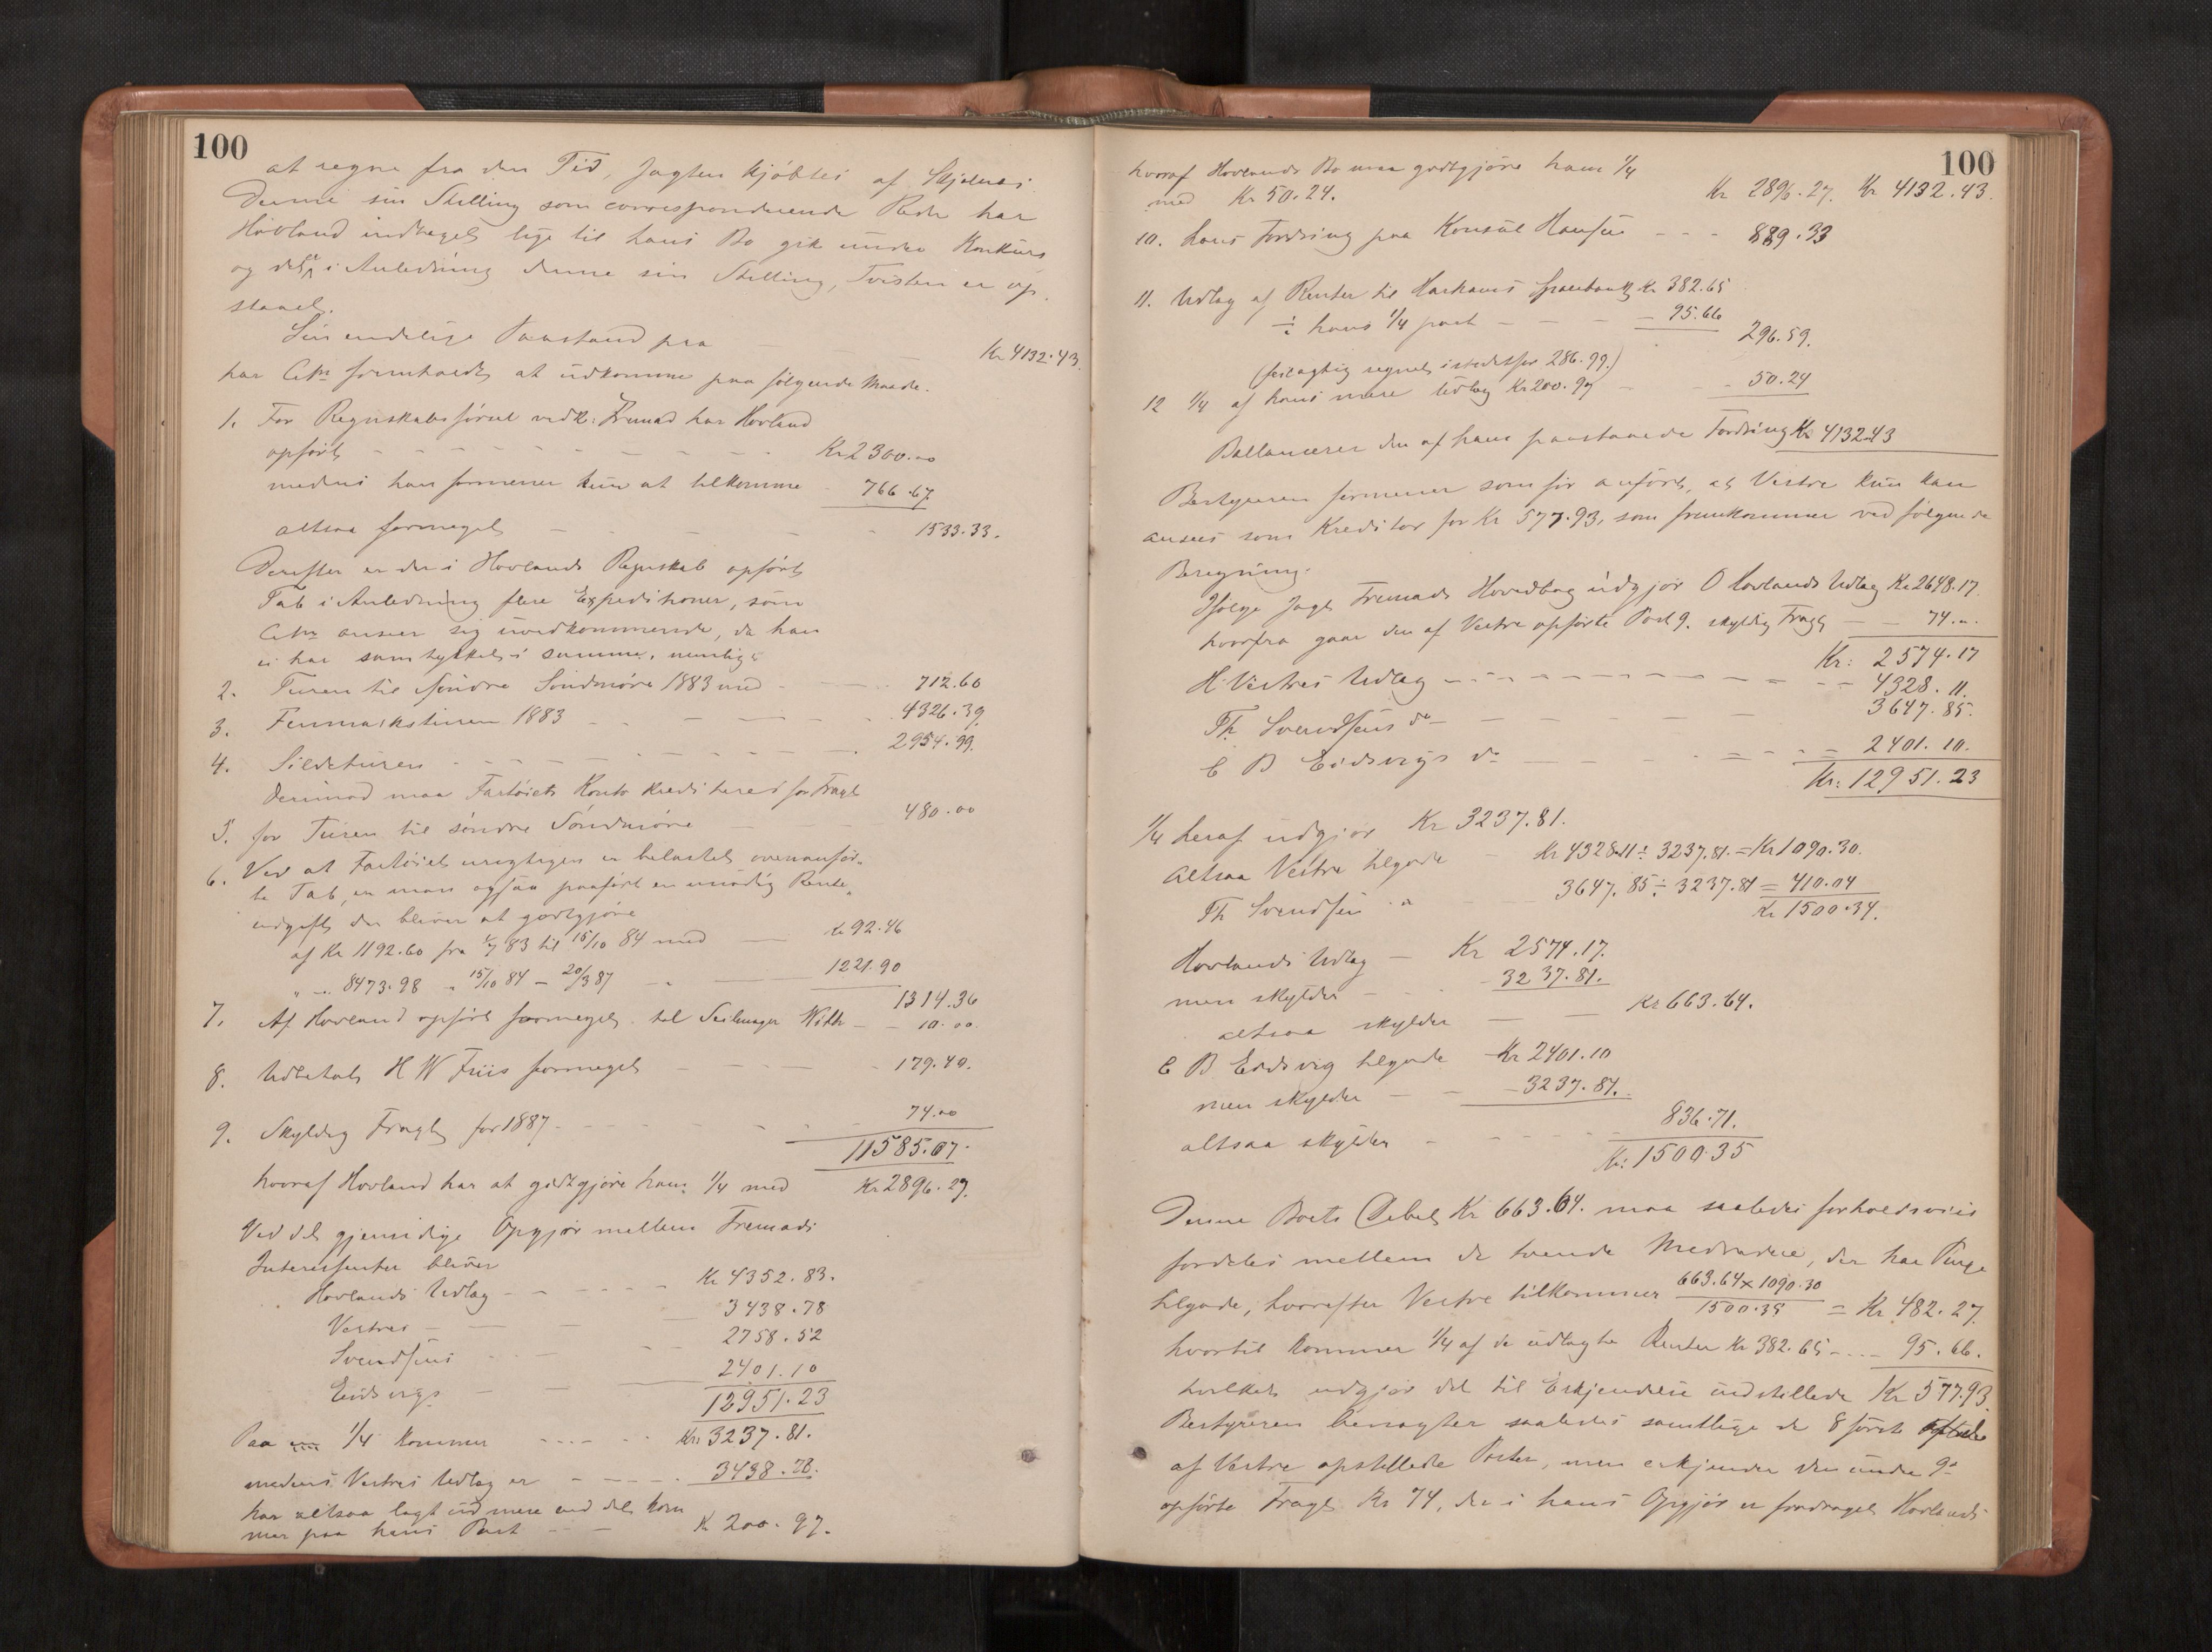 100
at regne fra den Tid, Jagten kjøbtes af Skjelnes.
Denne sin Stilling som correspondrende Reder har
Hovland indtaget lige til hans Bo gik under Konkurs
og det er i Anledning denne sin Stilling, Tvisten er op-
staaet.
Sin endelige Paastand paa — — — Kr 4132.43.
har Citn formholdt at udkomme paa følgende Maade.
1. For Regnskabsførsel vedk: Fremad har Hovland
opført - - - - - - - - Kr 2300.00
medens han formener kun at tilkomme 766.67.
altsaa formeget — - - - - 1533.33.
Derefter er der i Hovlands Regnskab opført
Tab i Anledning flere Expeditioner, som
Citn anseer sig uvedkommende, da han
ei har samtykket i samme, nemlig:
2. Turen til Søndre Søndmøre 1883 med - - - 712.60
3. Finmarksturen 1883 - - - - - 4326.39.
4. Sildeturen - - - - - - - 2954.99.
Derimod maa Fartøiets Konto krediteres for Fragt
5. for Turen til søndre Søndmøre — 480.00
6. Ved at Fartøiet urigtigen er belastet ovenanfør-
te Tab, er man ogsaa paaført en unødig Rente-
udgift der bliver at godtgjøre
af Kr 1192.60 fra 1/7 83 til 15/10 84 med — Kr 92.46
" - 8473.98 " 15/10 84 - 20/3 87 - " — 1221.90
1314.36
7. Af Hovland opført formeget til Seilmager With — - 10.00.
8. Udbetalt H W Friis formeget - - - - 179.40.
9. Skyldig Fragt for 1887 - - - - - - 74.00
11585.07.
hvoraf Hovland har at godtgjøre ham 1/4 med Kr 2896.27.
Ved det gjensidige Opgjør mellem Fremads
Interessenter bliver
Hovlands Udlæg - - - - - Kr 4352.83.
Vestres - — — — 3438.78
Svendsens - - - - 2758.52
Eidsvigs - — — 2401.10
12951.23
Paa 1/4 kommer - - - - - - Kr: 3237.81.
medens Vestres Udlæg er - - - - - 3438.78.
har altsaa lagt ud mere end det kom
mer paa hans Part - - — Kr 200.97.
100
hvoraf Hovlands Bo maa godtgjøre ham 1/4
med Kr 50.24. Kr 2896.27. Kr 4132.43.
10. hans Fordring paa Konsul Hansen - - - 889.33
11. Udlæg af Renter til Harhams Sparebank Kr 382.65
÷ hans 1/4 part - — — - 95.66
296.59.
(feilagtig regnet istedetfor 286.99.)
12 1/4 af hans mere Udlæg Kr 200.97 - - - 50.24
Ballancerer den af ham paastaaede Fordring Kr 4132.43
Bestyreren formener som før anført, at Vestre kun kan
ansees som Kreditor for Kr 577.93, som fremkommer ved følgende
Beregning.
Ifølge Jagt Fremads Hovedbog udgjør O Hovlands Udlæg Kr 2648.17.
hvorfra gaar den af Vestre opførte Post 9. skyldig Fragt — - 74.".
Kr: 2574.17
H. Vestres Udlæg - - - - - - - - - - - - 4328.11.
Th Svendsens do - — — — - — 3647.85.
E B Eidsvigs do — — — - = - - - 2401.10.
Kr: 12951.23
1/4 heraf udgjør Kr 3237.81.
altsaa Vestre tilgode - Kr 4328.11 ÷ 3237.81. = Kr 1090.30.
Th Svendsen " - — 3647.85 ÷ 3237.81 = 410.04
Kr 1500.34.
Hovlands Udlæg — Kr 2574.17.
men skylder - - - 3237.81.
altsaa skylder — — Kr 663.64.
E B Eidsvig tilgode Kr 2401.10
men skylder - - - 3237.81.
altsaa skylder - - - - - - 836.71.
Kr: 1500.35
Denne Boets Debet Kr 663.64. maa saaledes forholdsviis
fordeles mellem de tvende Medredere, der har Penge
tilgode, hvorefter Vestre tilkommer 663.64 x 1090.30 / 1500.35 = Kr 482.27.
hvortil kommer 1/4 af de udlagte Renter Kr 382.65 - . . . - 95.66.
hvilket udgjør det til Erkjendelse indstillede Kr 577.93.
Bestyreren benægter saaledes samtlige de 8 første
af Vestre opstillede Poster, men erkjender den under 9de
opførte Fragt Kr 74, der i hans Opgjør er fradraget Hovlands